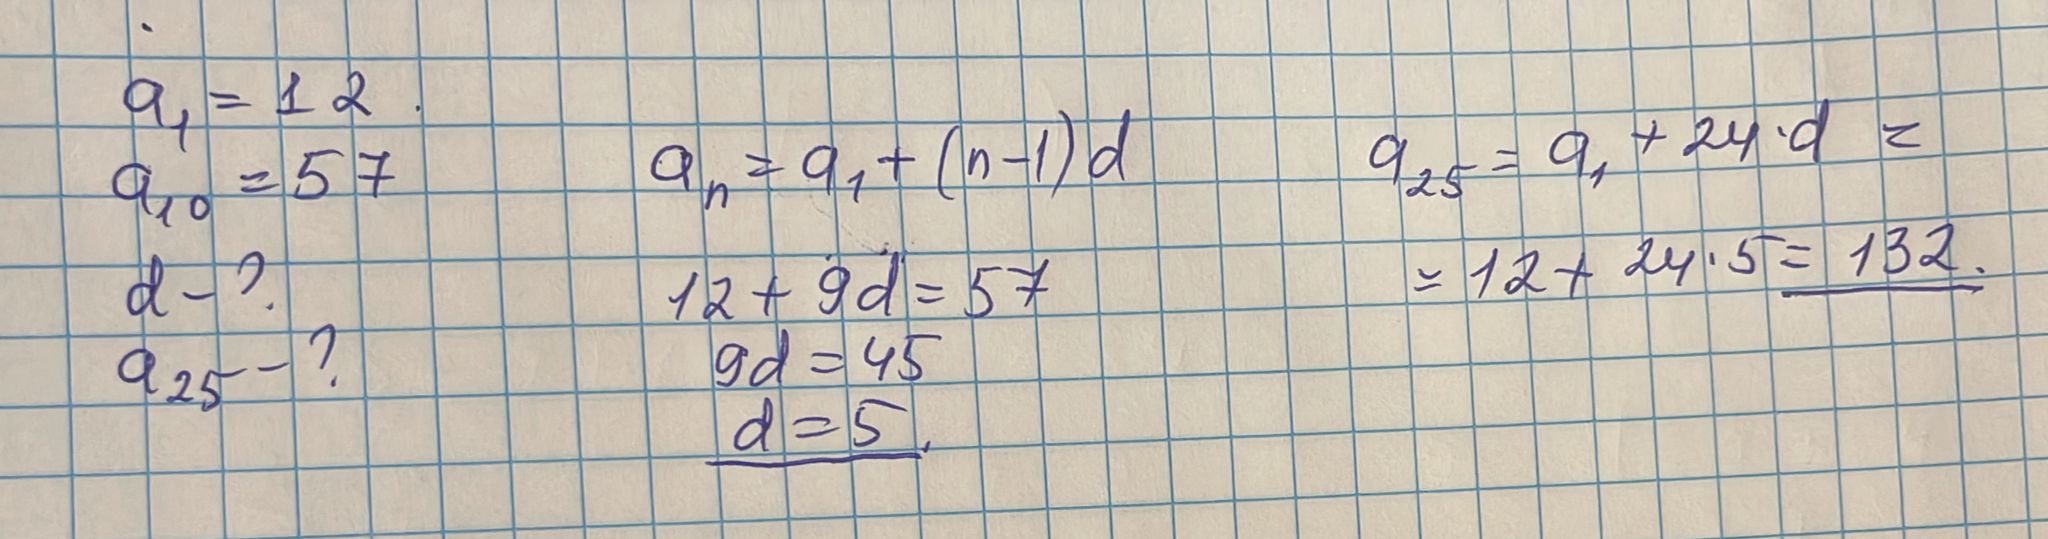 a₁ = 12.
a₁₀ = 57
d - ?
a₂₅ - ?
aₙ = a₁ + (n-1)d
12 + 9d = 57
9d = 45
d = 5.
a₂₅ = a₁ + 24·d =
= 12 + 24·5 = 132.